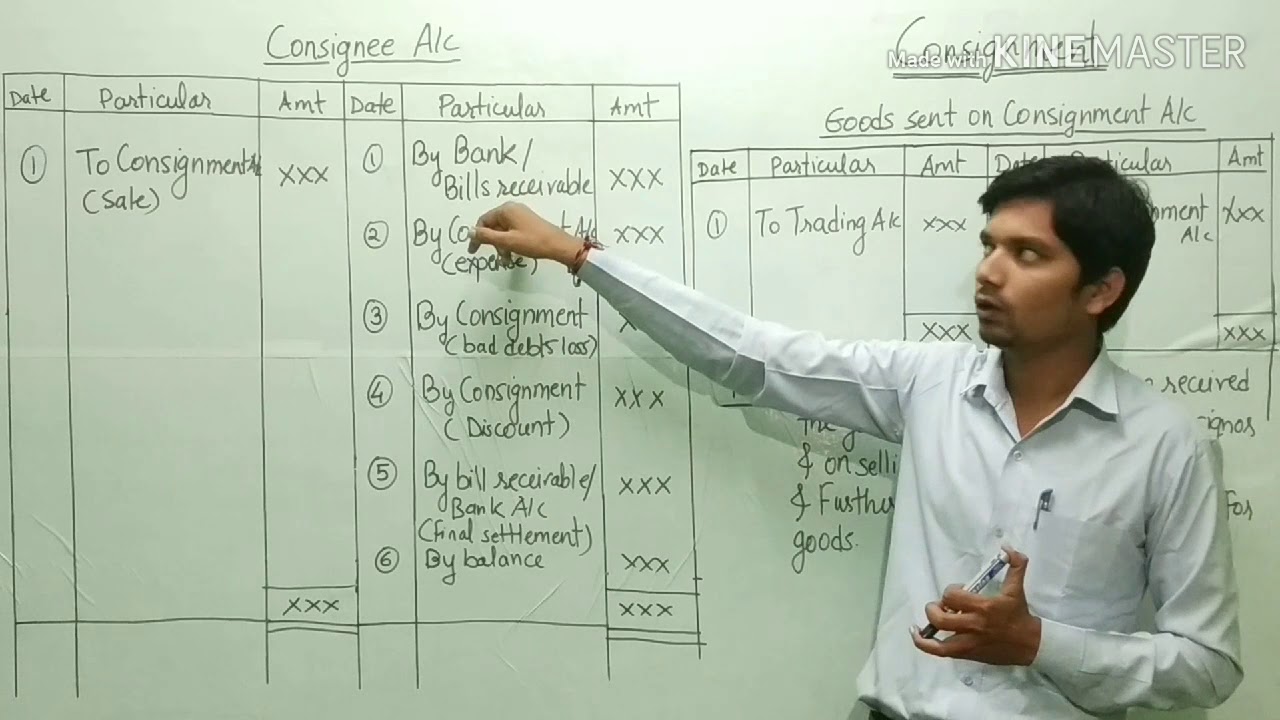 Consignee A/c
Date Particular Amt Date Particular Amt
① To Consignment A/c xxx
(Sale)
① By Bank/
Bills receivable xxx
② xxx
(expense)
③ By Consignment
(bad debts loss)
④ By Consignment xxx
(Discount)
⑤ By bill receivable/ xxx
Bank A/c
(final settlement)
⑥ By balance xxx
xxx xxx
Consignment
Made with KINEMASTER
Goods sent on Consignment A/c
Date Particular Amt Date Particular Amt
① To Trading A/c xxx xxx
A/c
xxx xxx
& on
&
goods.
For